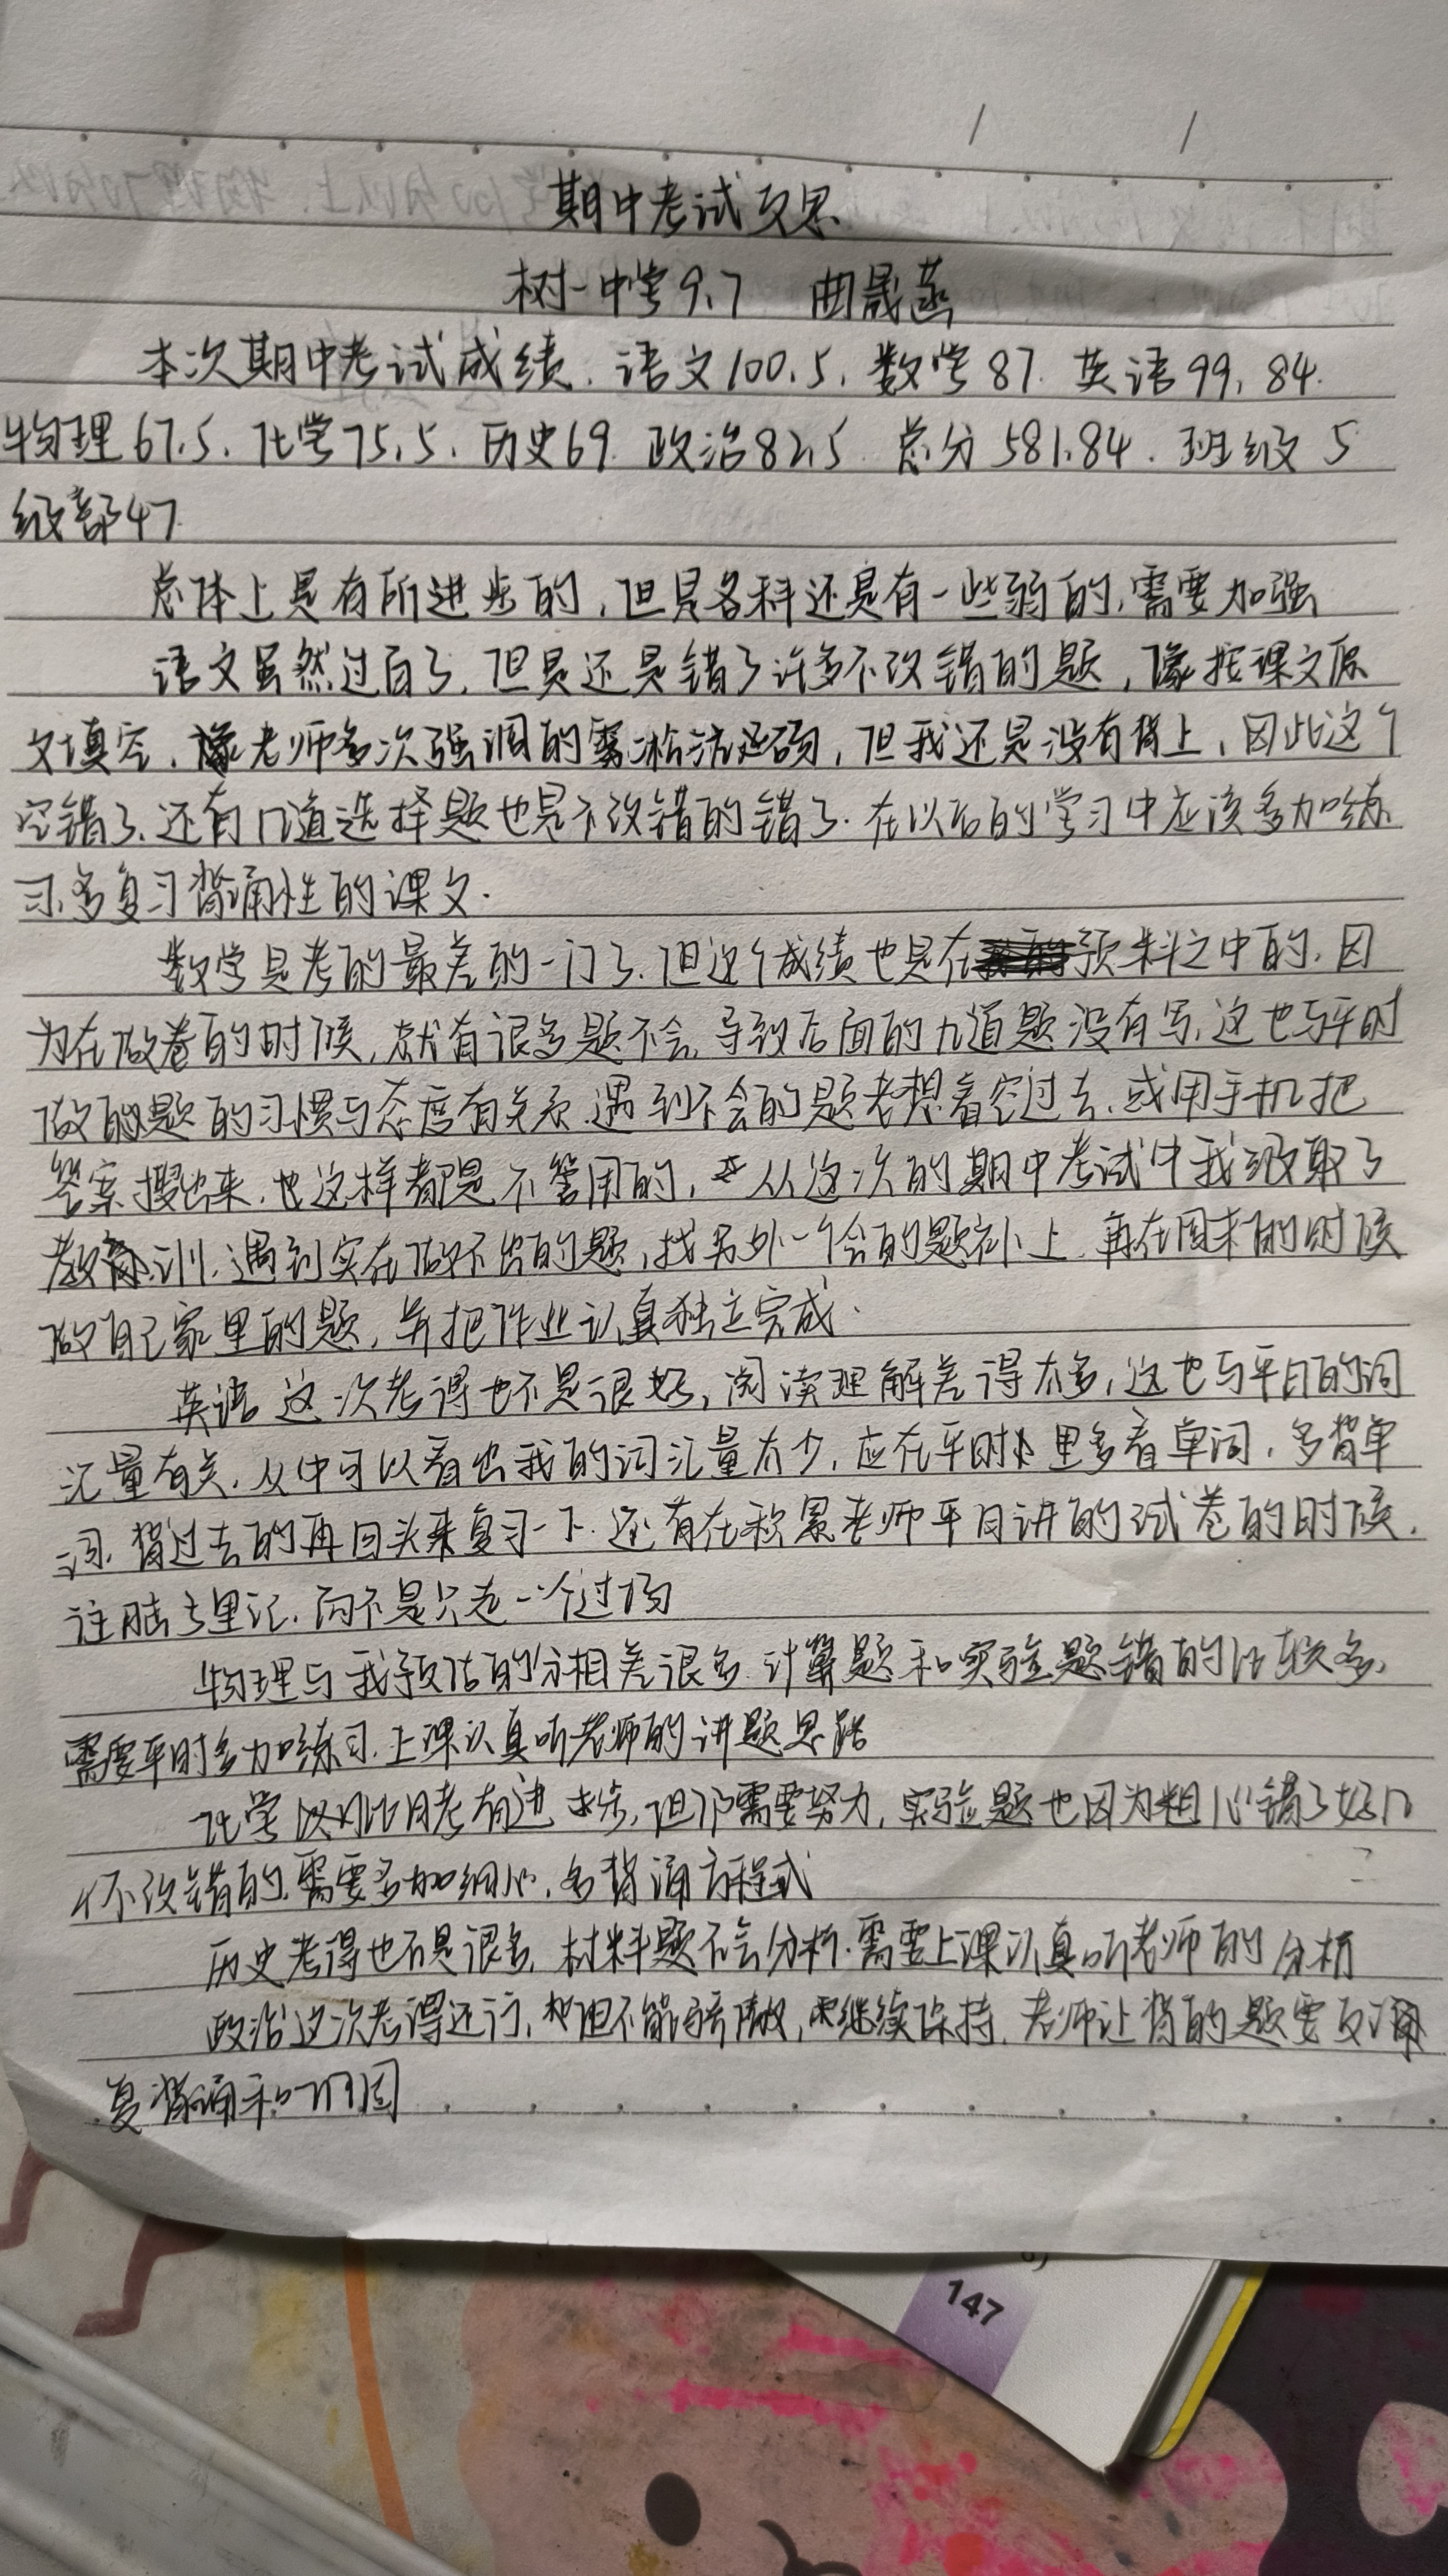 期中考试反思
树一中学9.7 曲晟菡
本次期中考试成绩、语文100.5、数学87. 英语99.84.
物理67.5、化学75.5、历史69. 政治82.5 总分581.84. 班级5
级部47
总体上是有所进步的,但是各科还是有一些弱的,需要加强
语文虽然过百了,但是还是错了许多不改错的题,像按课文原
文填空、像老师多次强调的雾凇沆砀,但我还是没有背上,因此这个
空错了.还有几道选择题也是不改错的错了.在以后的学习中应该多加练
习,多复习背诵性的课文.
数学是考的最差的一门了.但这个成绩也是在预料之中的.因
为在做卷的时候,就有很多题不会,导致后面的几道题没有写,这也与平时
做的题的习惯与态度有关系.遇到不会的题老想着空过去,或用手机把
答案搜出来.也这样都是不管用的,从这次的期中考试中我吸取了
教训.遇到实在做不出的题,找另外一个会的题补上.再在周末的时候
做自己家里的题,并把作业认真独立完成.
英语这次考得也不是很好,阅读理解差得太多,这也与平日的词
汇量有关.从中可以看出我的词汇量太少,应在平时里多看单词,多背单
词.背过去的再回头来复习一下.还有在积累老师平日讲的试卷的时候.
往脑子里记.而不是只走一个过场
物理与我预估的分相差很多.计算题和实验题错的比较多,
需要平时多加练习.上课认真听老师的讲题思路
化学以对比月考有进步,但仍需要努力,实验题也因为粗心错了好几
个不改错的.需要多加细心,多背诵方程式
历史考得也不是很多,材料题不会分析.需要上课认真听老师的分析
政治这次考得还行,但不能骄傲,继续保持.老师让背的题要反
复背诵和巩固
147